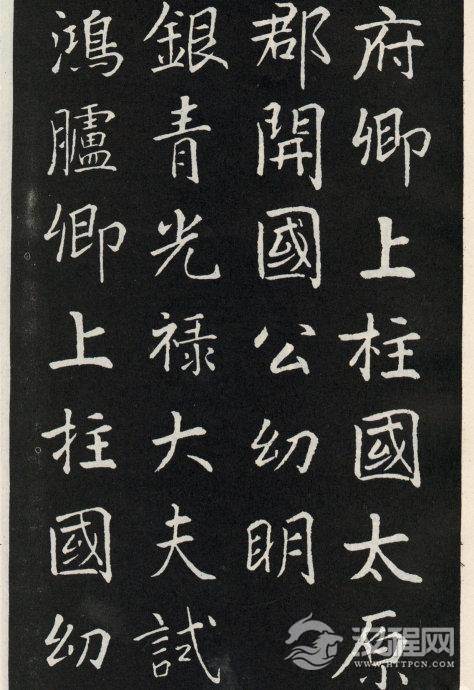 府卿上柱國太原
郡開國公幼明
銀青光禄大夫試
鴻臚卿上柱國幼
汉程网
WWW.HTTPCN.COM